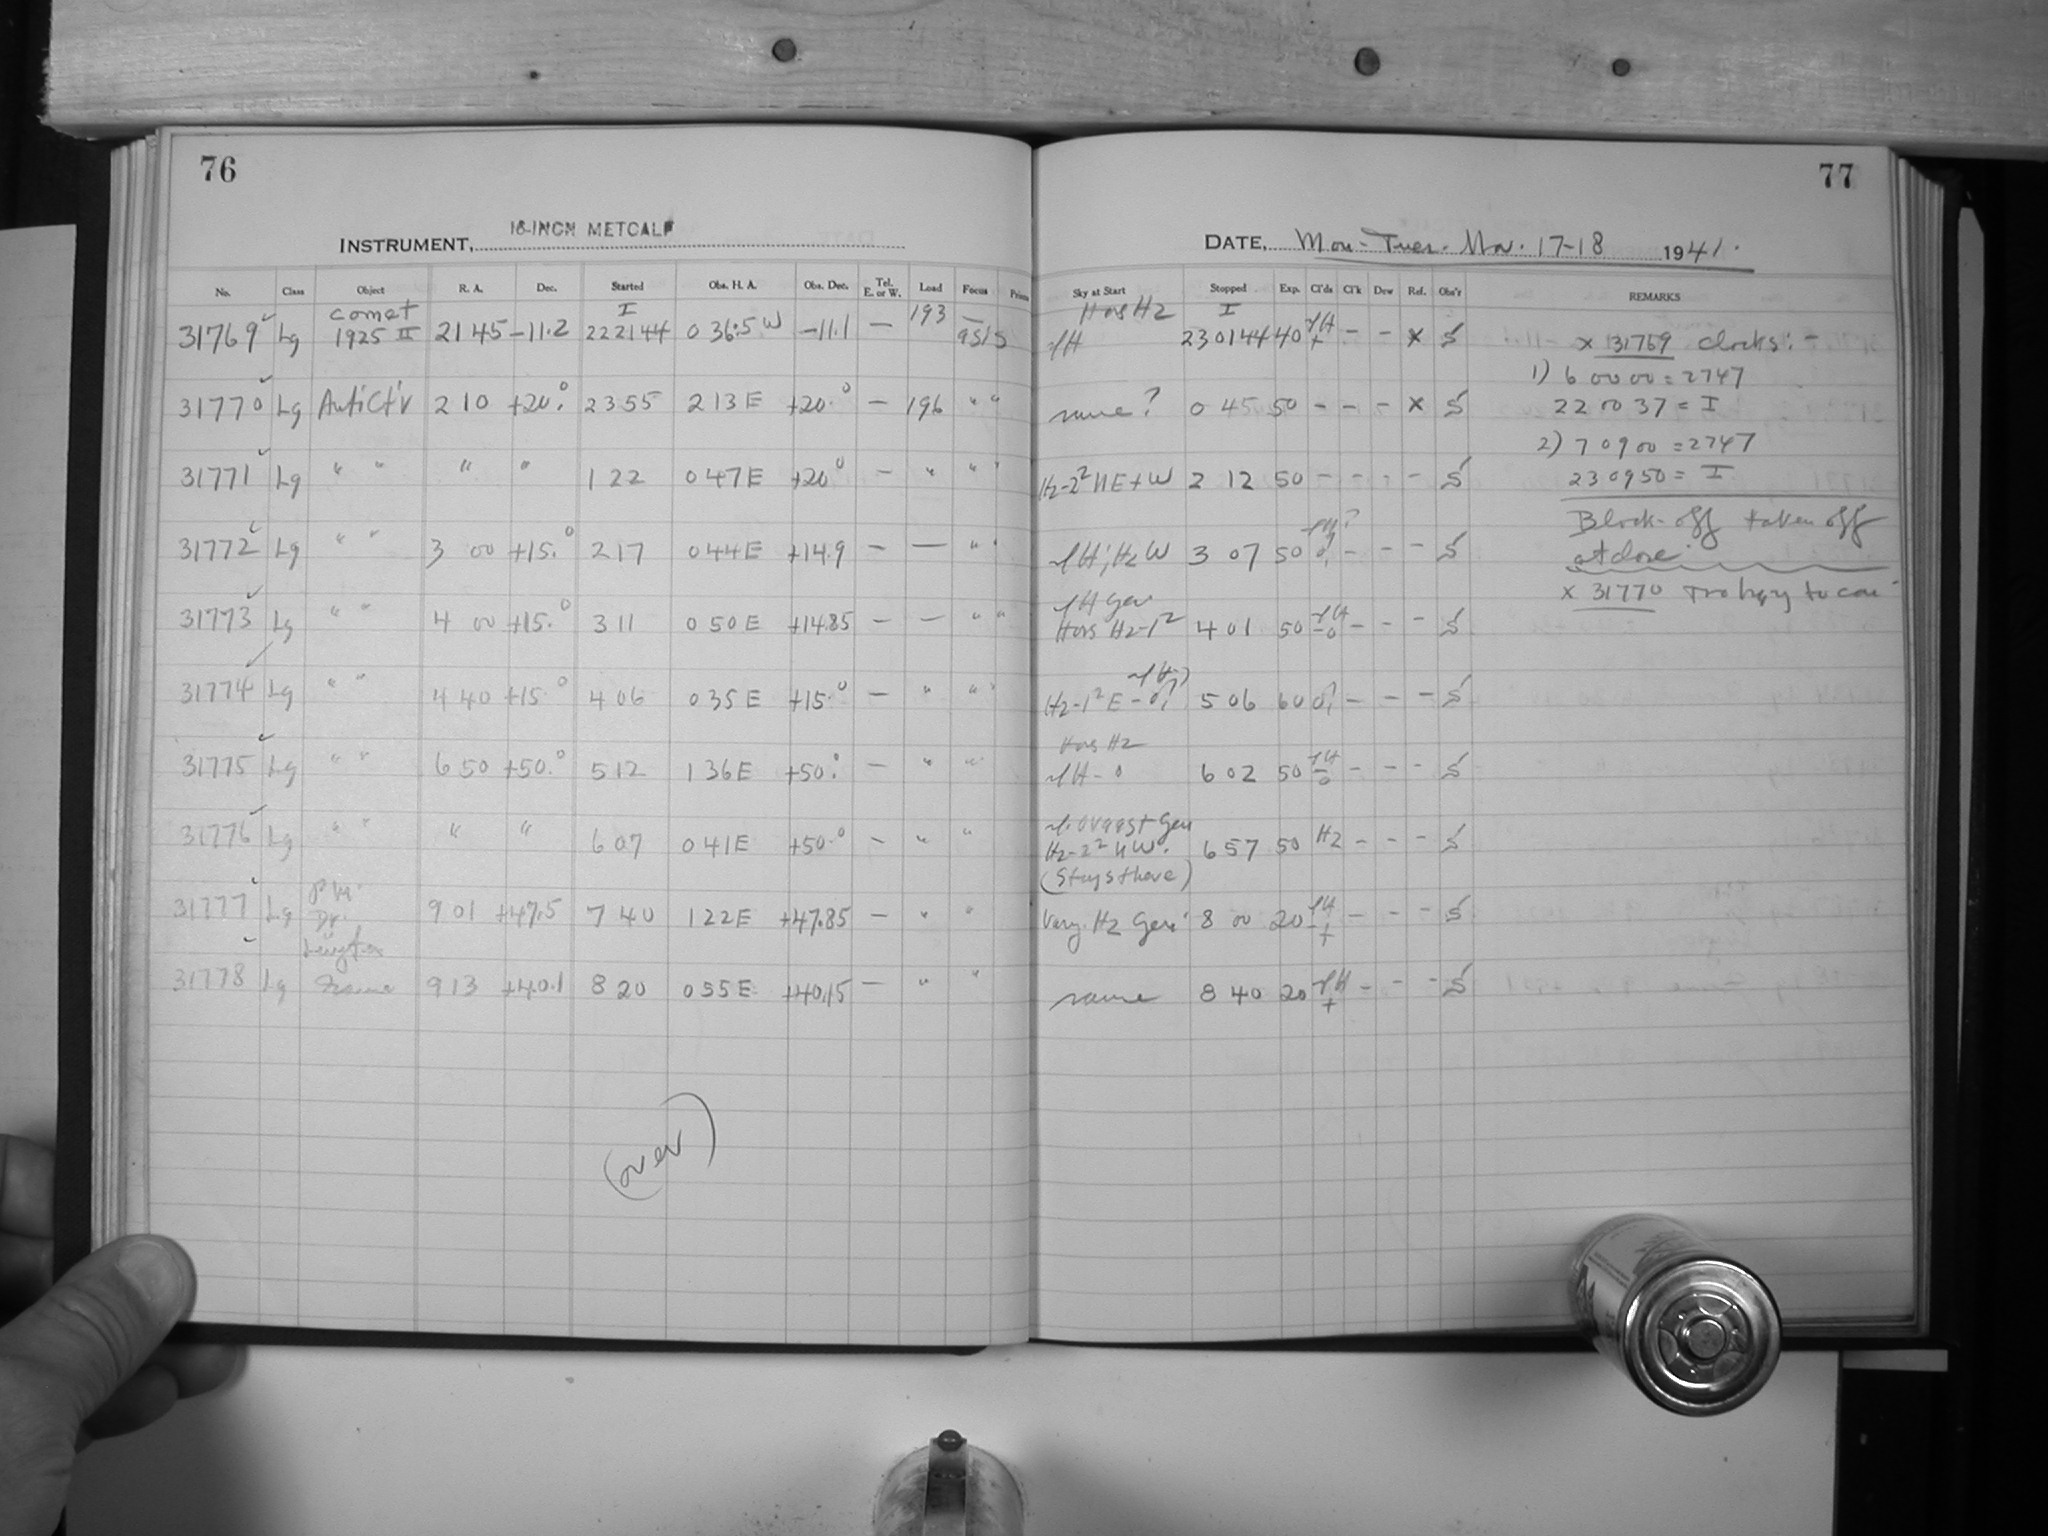 76
16-INCH METCALF
INSTRUMENT,
No. Class Object R. A. Dec. Started Obs. H. A. Obs. Dec. Tel. E. or W. Load Focus
31769 Lg comet 1925 II 21 45 -11.2 I 22 21 44 0 36.5 W -11.1 — 193
31770 Lg 2 10 +20.0 23 55 2 13 E +20.0 — 196 " "
31771 Lg " " " " 1 22 0 47 E +20.0 — " " "
31772 Lg " " 3 00 +15.0 2 17 0 44 E +14.9 — — " "
31773 Lg " " 4 00 +15.0 3 11 0 50 E +14.85 — — " "
31774 Lg " " 4 40 +15.0 4 06 0 35 E +15.0 — " " "
31775 Lg " " 6 50 +50.0 5 12 1 36 E +50.0 — " " "
31776 Lg " " " " 6 07 0 41 E +50.0 — " "
31777 Lg 9 01 +47.5 7 40 1 22 E +47.85 — " "
31778 Lg Same 9 13 +40.1 8 20 0 55 E +40.15 — " "
(over)
77
DATE, Mon-Tues. Nov. 17-18 1941.
Sky at Start Stopped Exp. Cl'ds Cl'k Dew Ref. Obs'r REMARKS
Hors Hz I
23 01 44 40 - - x S
same? 0 45 50 - - - x S
Hz-2² NE + W 2 12 50 - - - - S
Hz W 3 07 50 - - - S
Gen
Hors Hz-1² 4 01 50 - - - S
Hz-1² E 5 06 60 - - - S
Hors Hz
6 02 50 - - - S
Gen
Hz-2² NW. 6 57 50 Hz - - - S
(Stays there)
Vary. Hz Gen. 8 00 20 - - - S
same 8 40 20 - - - S
x 31769 clocks: -
1) 6 00 00 = 2747
22 00 37 = I
2) 7 09 00 = 2747
23 09 50 = I
Block-off taken off
at close
x 31770